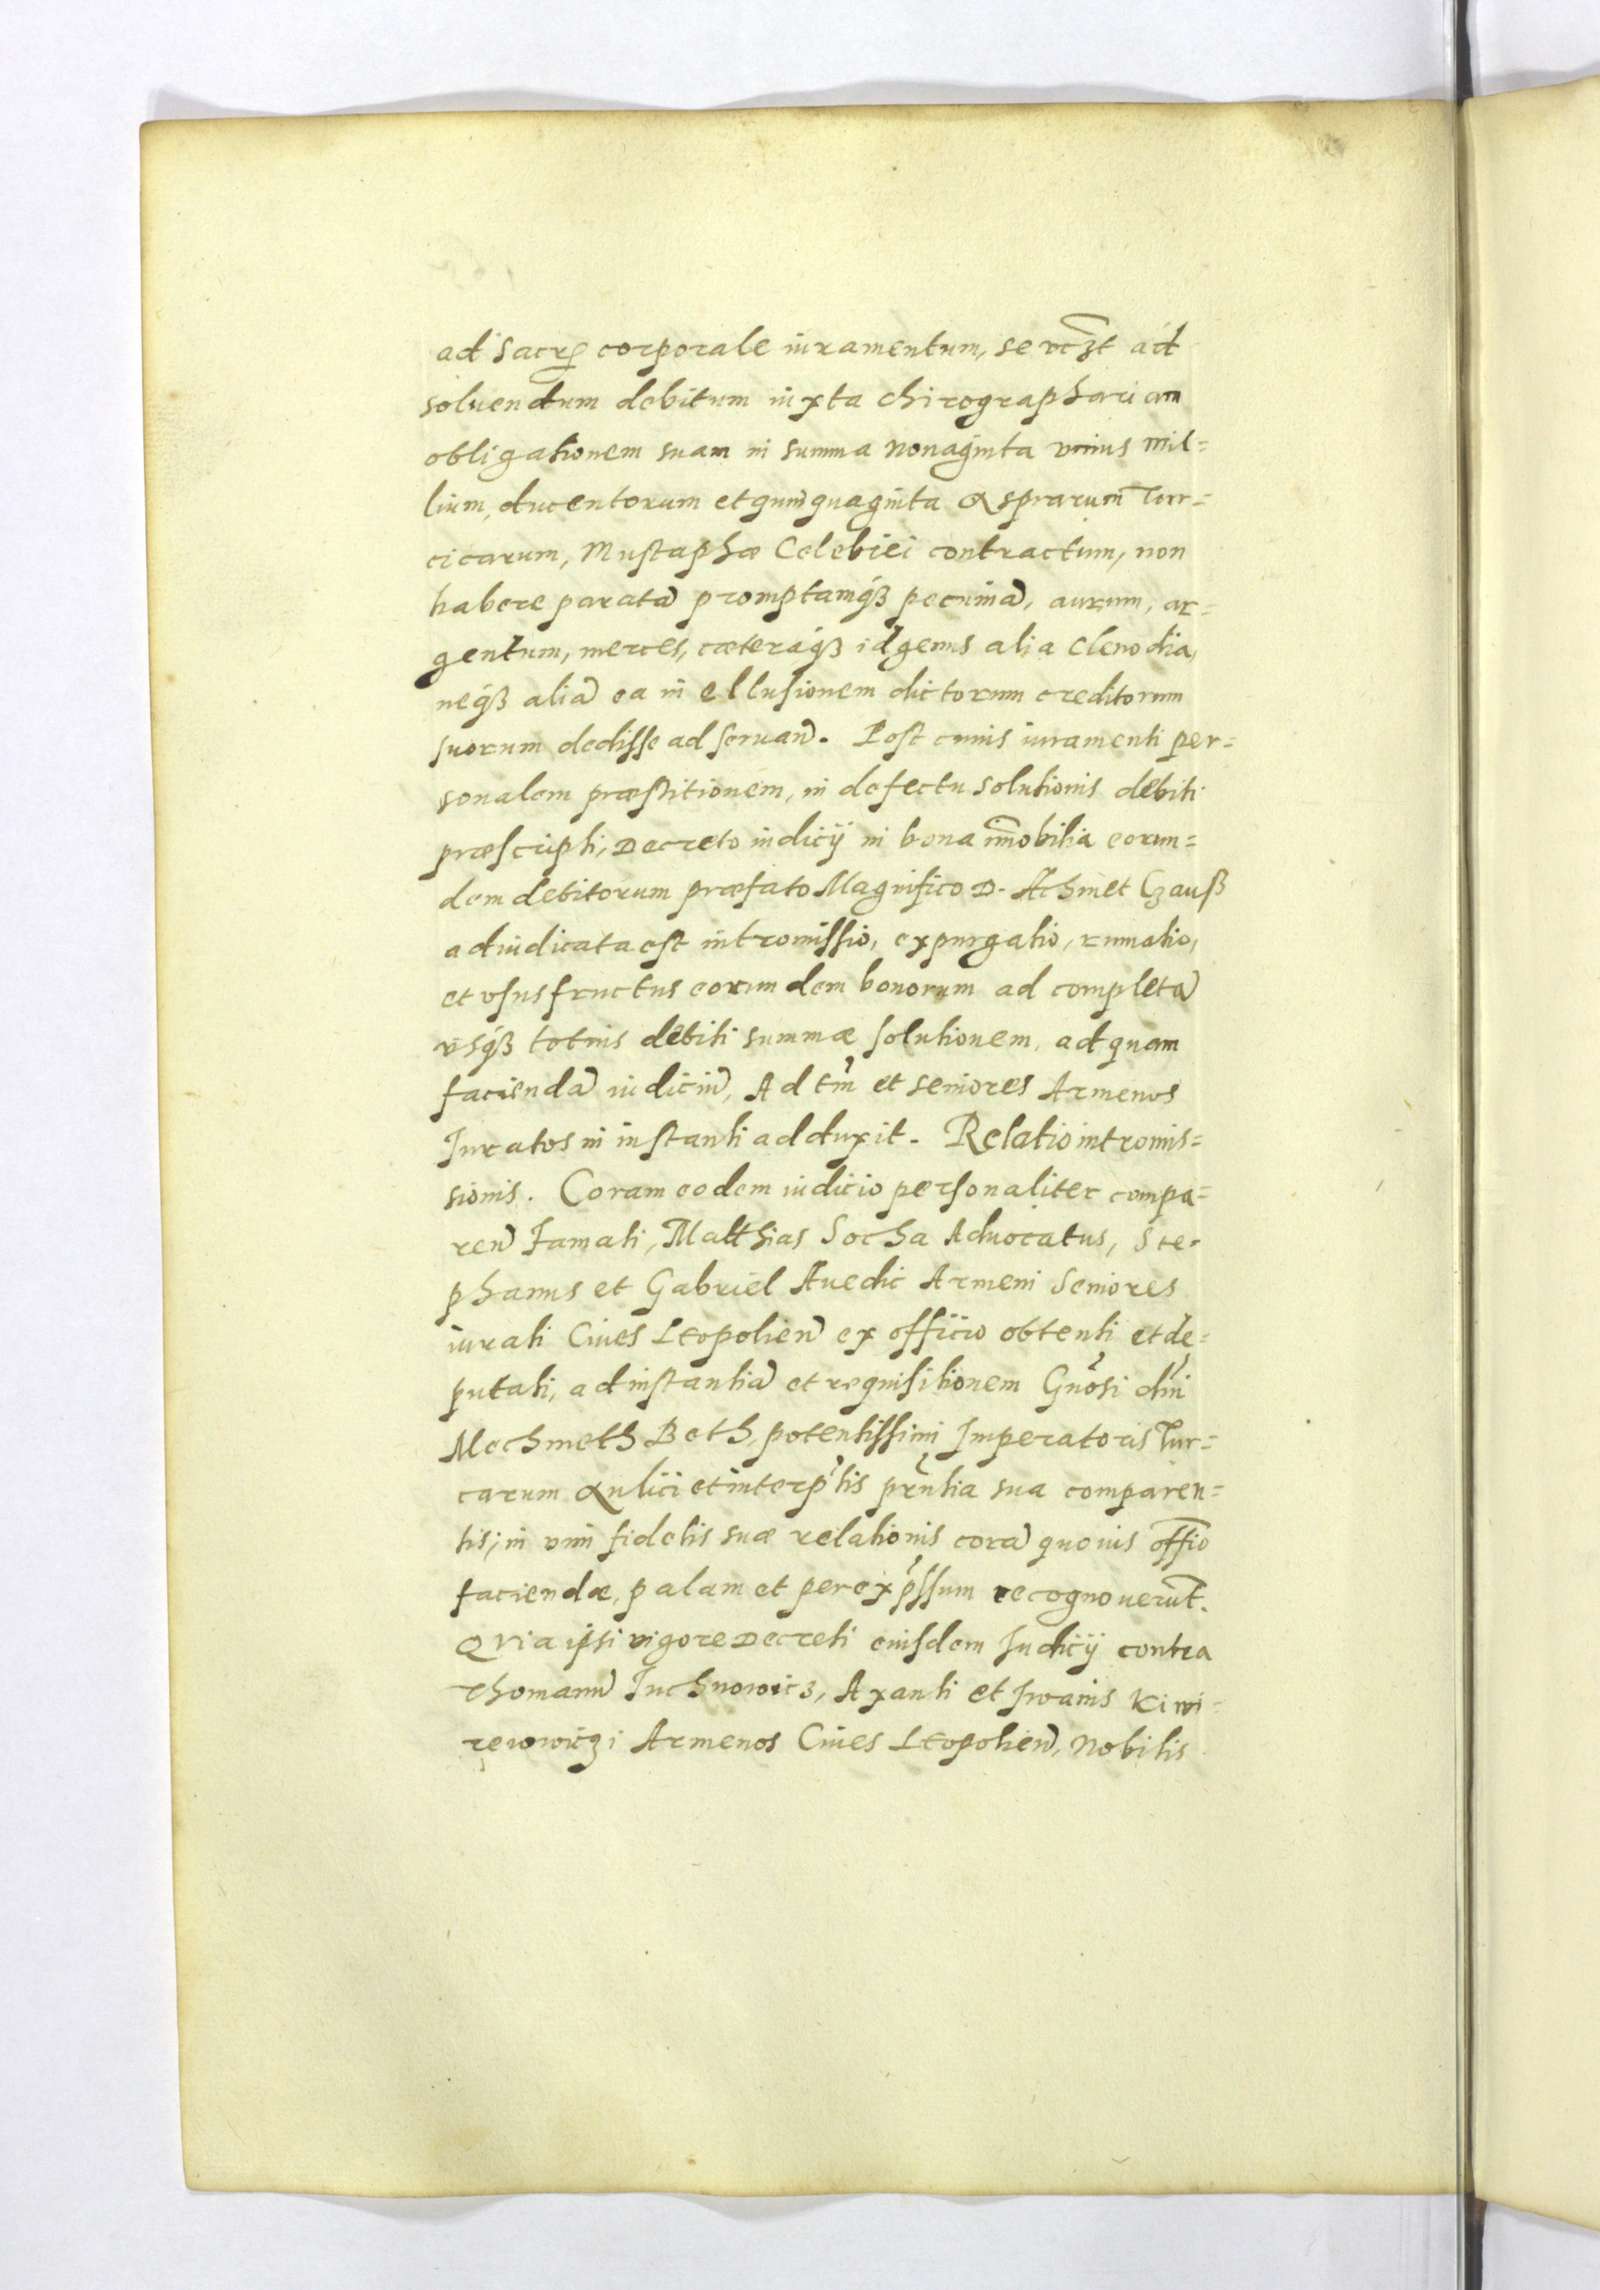 ad sacrũ corporale iuramentum, se vczt ad
soluendum debitum iuxta chirographariam
obligationem suam in summa nonaginta vnius mil=
lium, ducentorum et quinquaginta Asprarum Tur=
cicarum, Mustaphæ Celebiei contractum, non
habere paratã promptamq́ʒ pecuniã, aurum, ar=
gentum, merces, cæteraq́ʒ id genus alia clenodia,
neq́ʒ aliã ea in ellusionem dictorum creditorum
suorum dedisse ad seruañ. Post cuius iuramenti per=
sonalem præstitionem, in defectu solutionis debiti
præscripti, Decreto iudicij in bona im̃obilia eorun=
dem debitorum præfato Magnifico D. Achmet Czauß
adiudicata est intromissio, expurgatio, rumatio,
et vsusfructus eorundem bonorum ad completã
vsq́ʒ totius debiti summæ solutionem, ad quam
faciendã iudiciũ, Adtm̃ et seniores Armenos
Iuratos in instanti adduxit. Relatio intromis=
sionis. Coram eodem iudicio personaliter compa=
reñ Famati, Matthias Socha Aduocatus, Ste=
phanus et Gabriel Auedic Armeni Seniores
iurati Ciues Leopolieñ ex officio obtenti et de=
putati, ad instantiã et requisitionem Gnõsi dñi
Mechmeth Beth, potentissimi Imperatoris Tur=
carum Aulici et interp̃tis prñtia sua comparen=
tis, in vim fidelis suæ relationis corã quouis offõ
faciendæ, palam et per exp̃ssum recognouerũt.
Qvia ipsi vigore Decreti eiusdem Iudicij contra
Thomann Iuchnowicz, Axanti et Iwanis Kiwi=
rewowiczi Armenos Ciues Leopolieñ, Nobilis